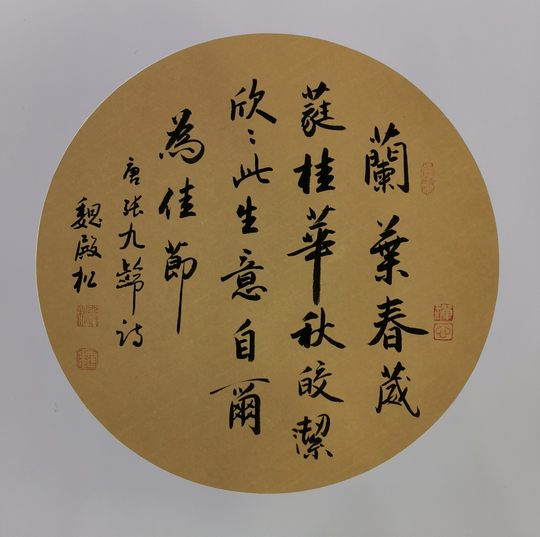 蘭葉春葳
蕤桂華秋皎潔
欣〻此生意自爾
為佳節
唐張九齡詩
魏殿松